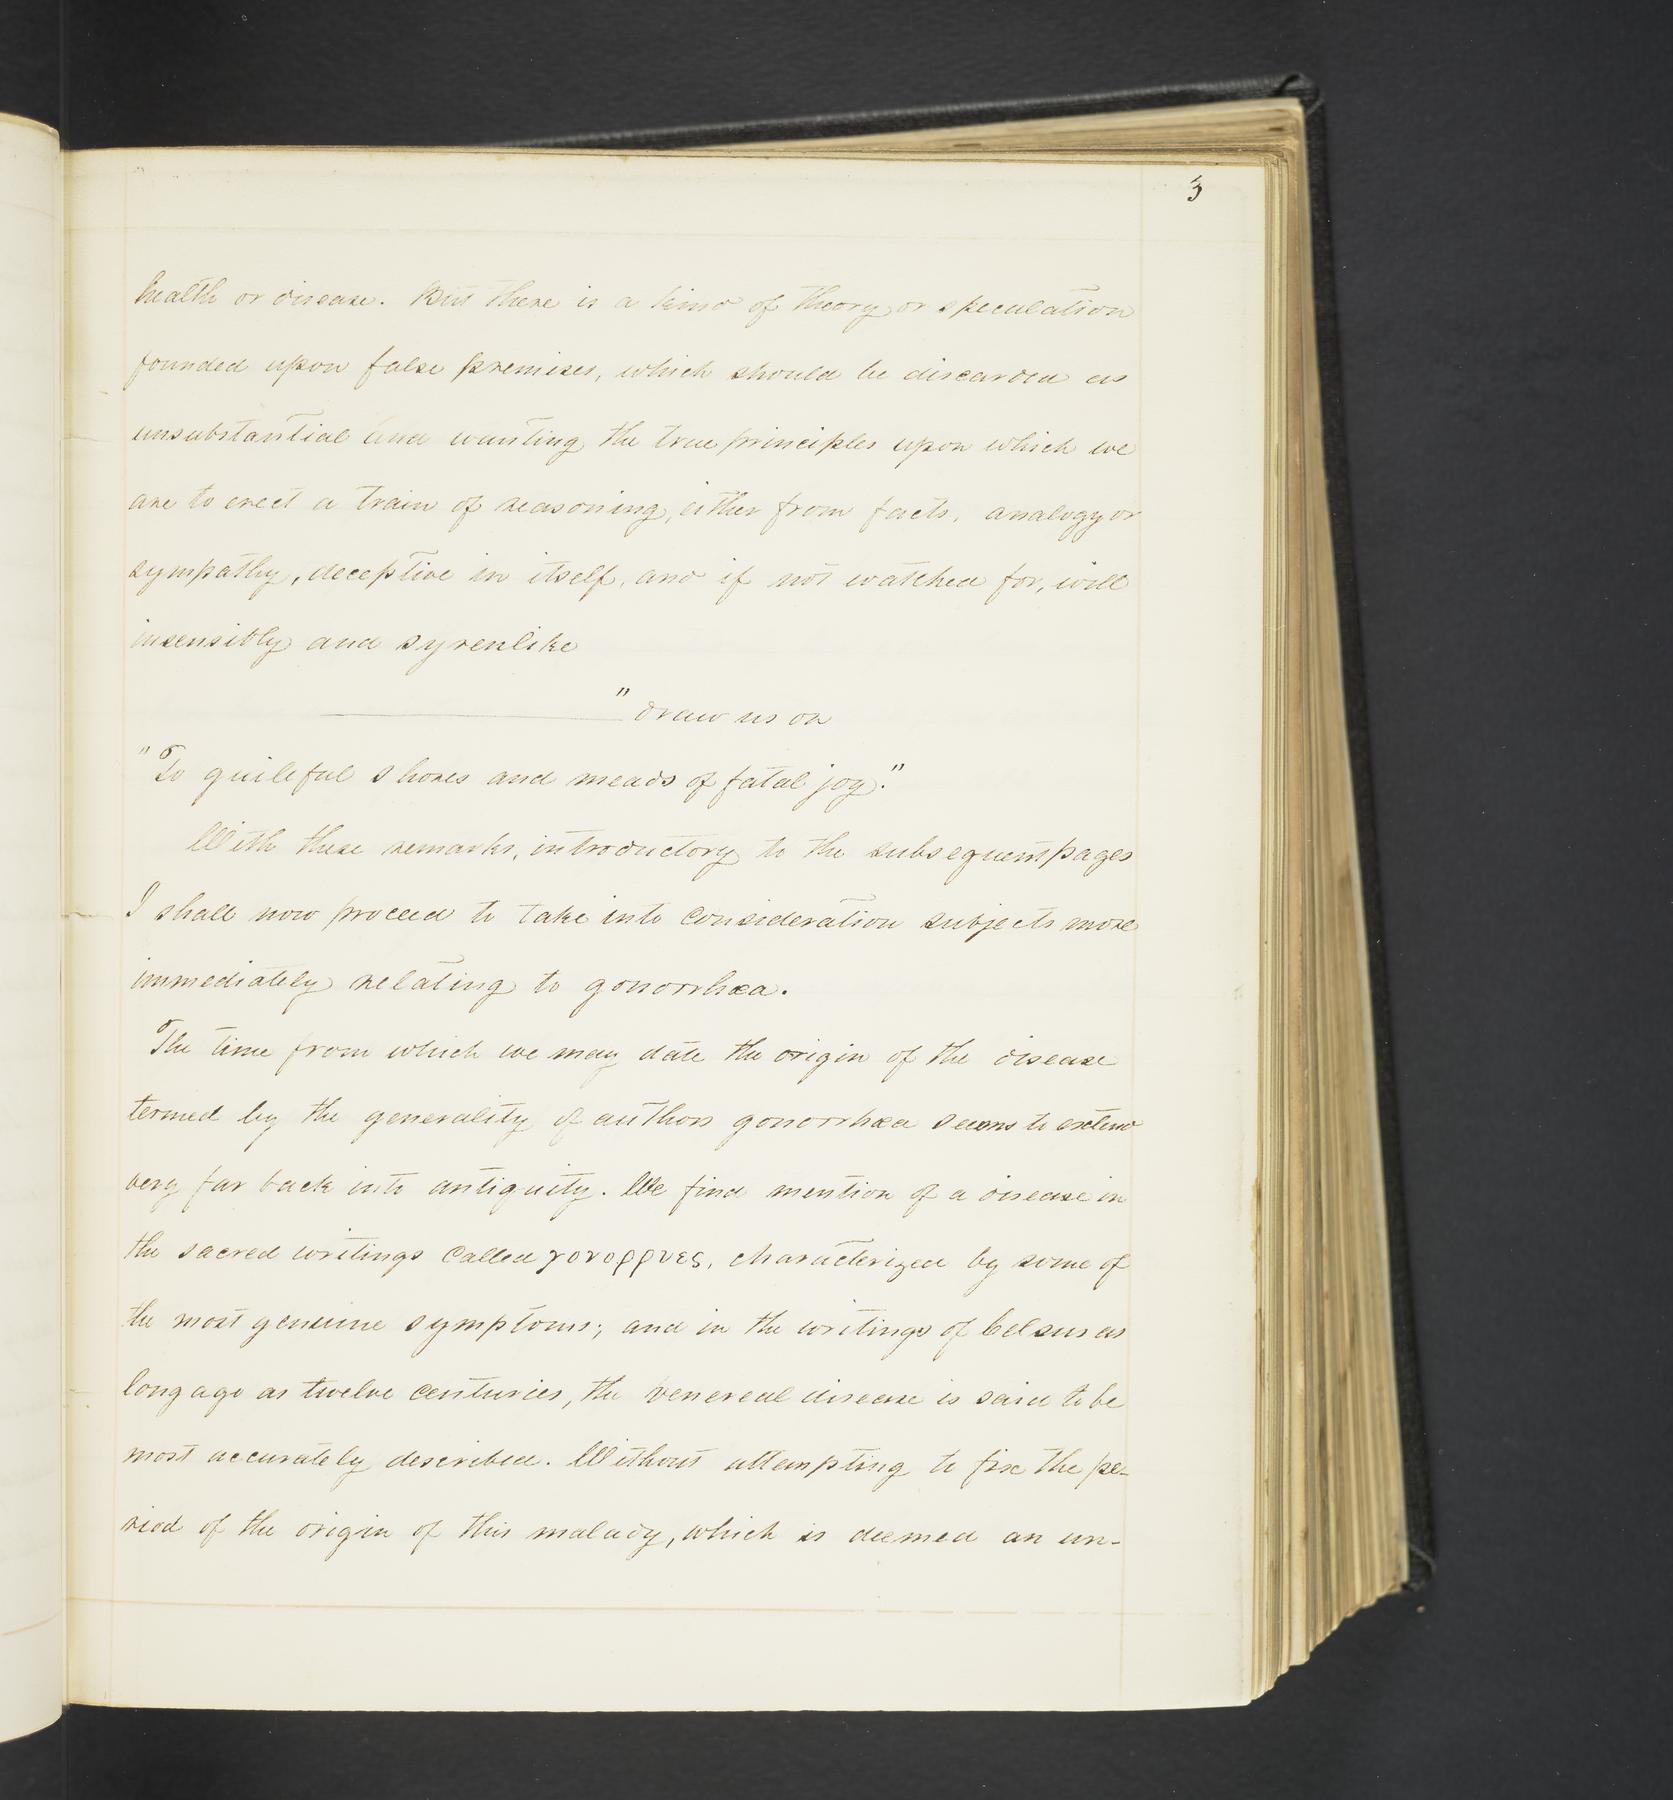 3
health or disease. But there is a kind of theory or speculation
founded upon false premises, which should be discarded as
unsubstantial and wanting the true principles upon which we
are to erect a train of reasoning, either from facts, analogy or
sympathy, deceptive in itself, and if not watched for, will
insensibly and syrenlike
"draw us on
"To guileful shores and meads of fatal joy."
With these remarks, introductory to the subsequent pages
I shall now proceed to take into consideration subjects more
immediately relating to gonorrhœa.
The time from which we may date the origin of the disease
termed by the generality of authors gonorrhœa seems to extend
very far back into antiquity. We find mention of a disease in
the sacred writings called γονορρυες, characterized by some of
the most genuine symptoms; and in the writings of Celsus as
long ago as twelve centuries, the venereal disease is said to be
most accurately described. Without attempting to fix the pe-
riod of the origin of this malady, which is deemed an un-